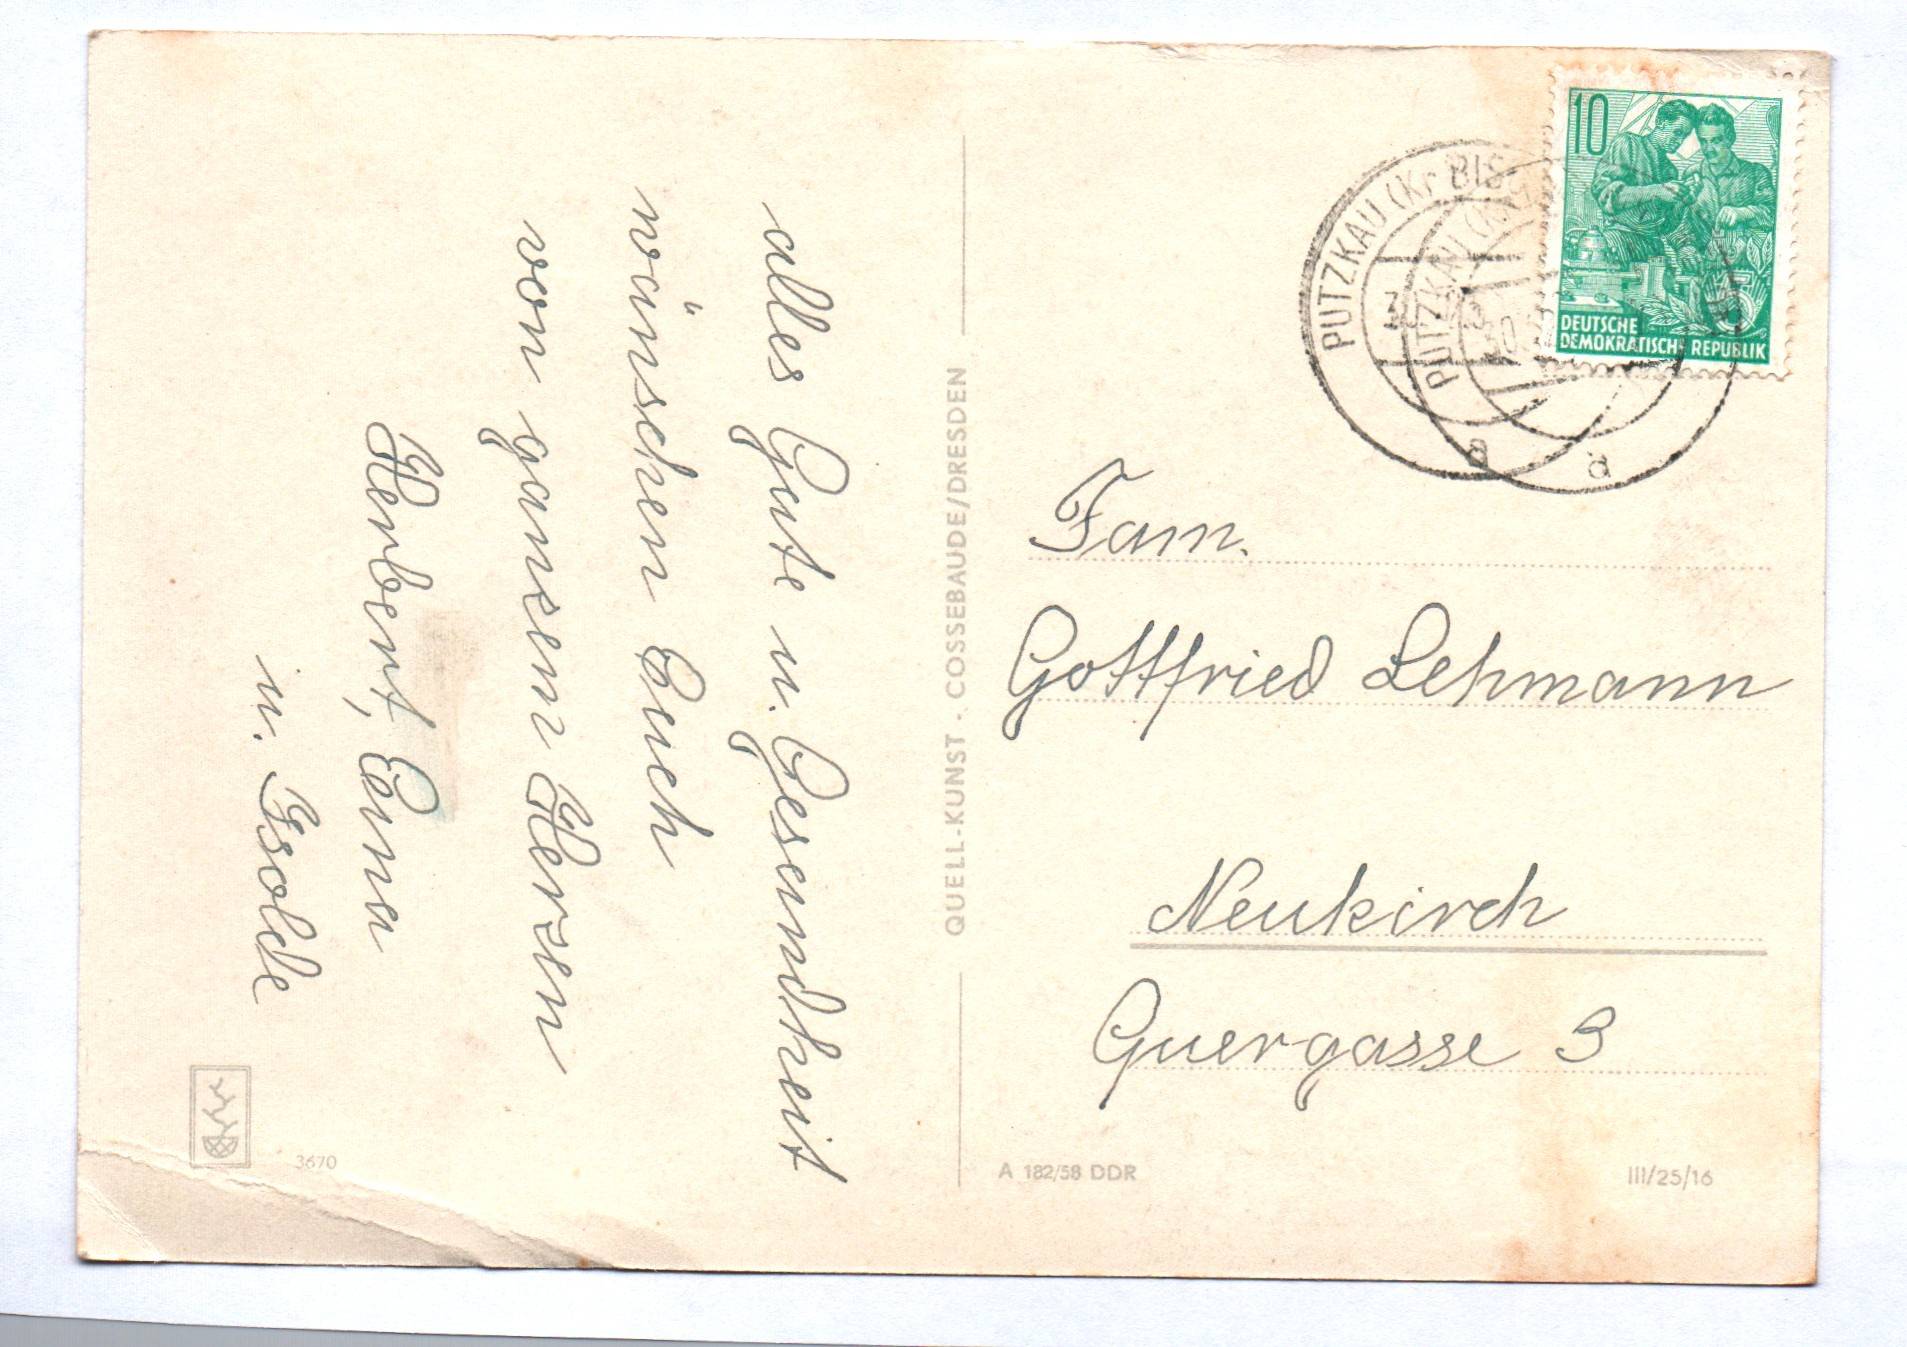 alles Gute u. Gesundheit
wünschen Euch
von ganzem Herzen
Herbert, Erna
u. Isolde
3670
QUELL-KUNST · COSSEBAUDE/DRESDEN
10
DEUTSCHE
DEMOKRATISCHE REPUBLIK
PUTZKAU (Kr BIS
a
PUTZKAU
30
a
Fam.
Gottfried Lehmann
Neukirch
Quergasse 3
A 182/58 DDR
III/25/16